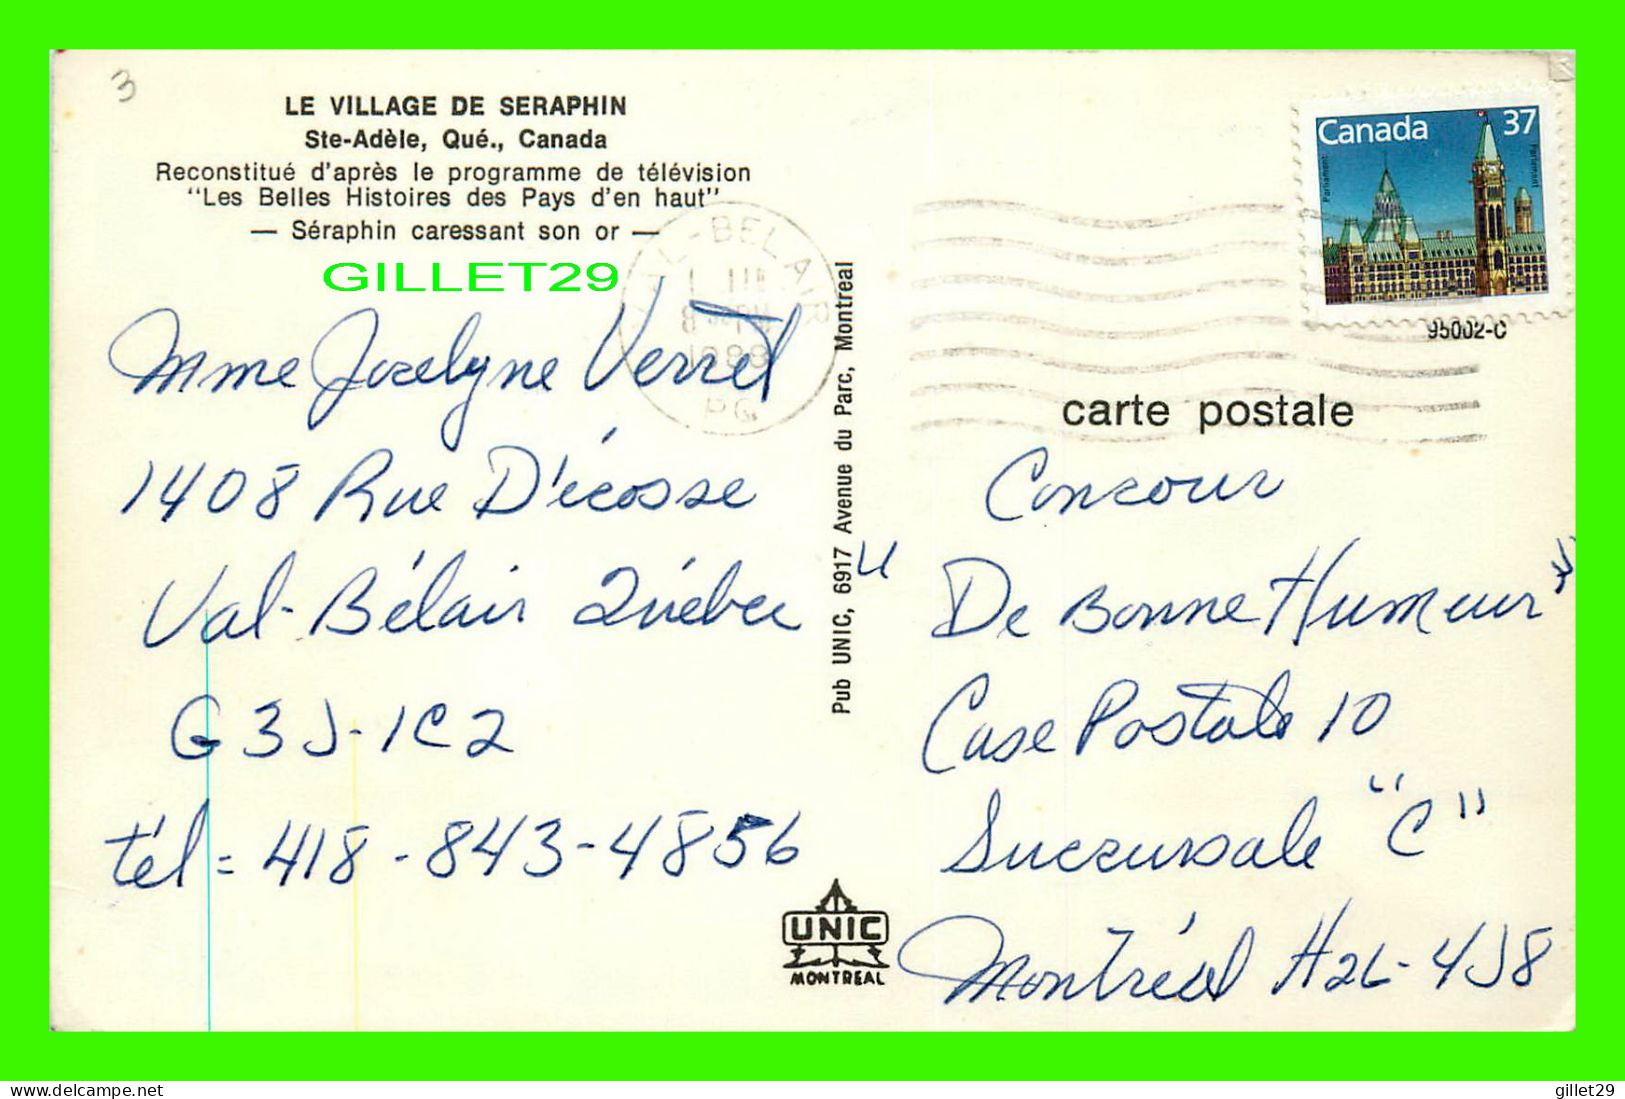 3
LE VILLAGE DE SERAPHIN
Ste-Adèle, Qué., Canada
Reconstitué d'après le programme de télévision
"Les Belles Histoires des Pays d'en haut"
— Séraphin caressant son or —
GILLET29
Mme Jocelyne Verret
1408 Rue D'écosse
Val-Bélair Québec
G3J-1C2
tél= 418-843-4856
VAL-BELAIR
1988
P.Q.
Pub UNIC, 6917 Avenue du Parc, Montreal
UNIC
MONTREAL
Canada 37
Parliament
Parlement
95002-C
carte postale
Concour
"De Bonne Humeur"
Case Postale 10
Succursale "C"
Montréal H2L-4J8
Delcampe.net
gillet29